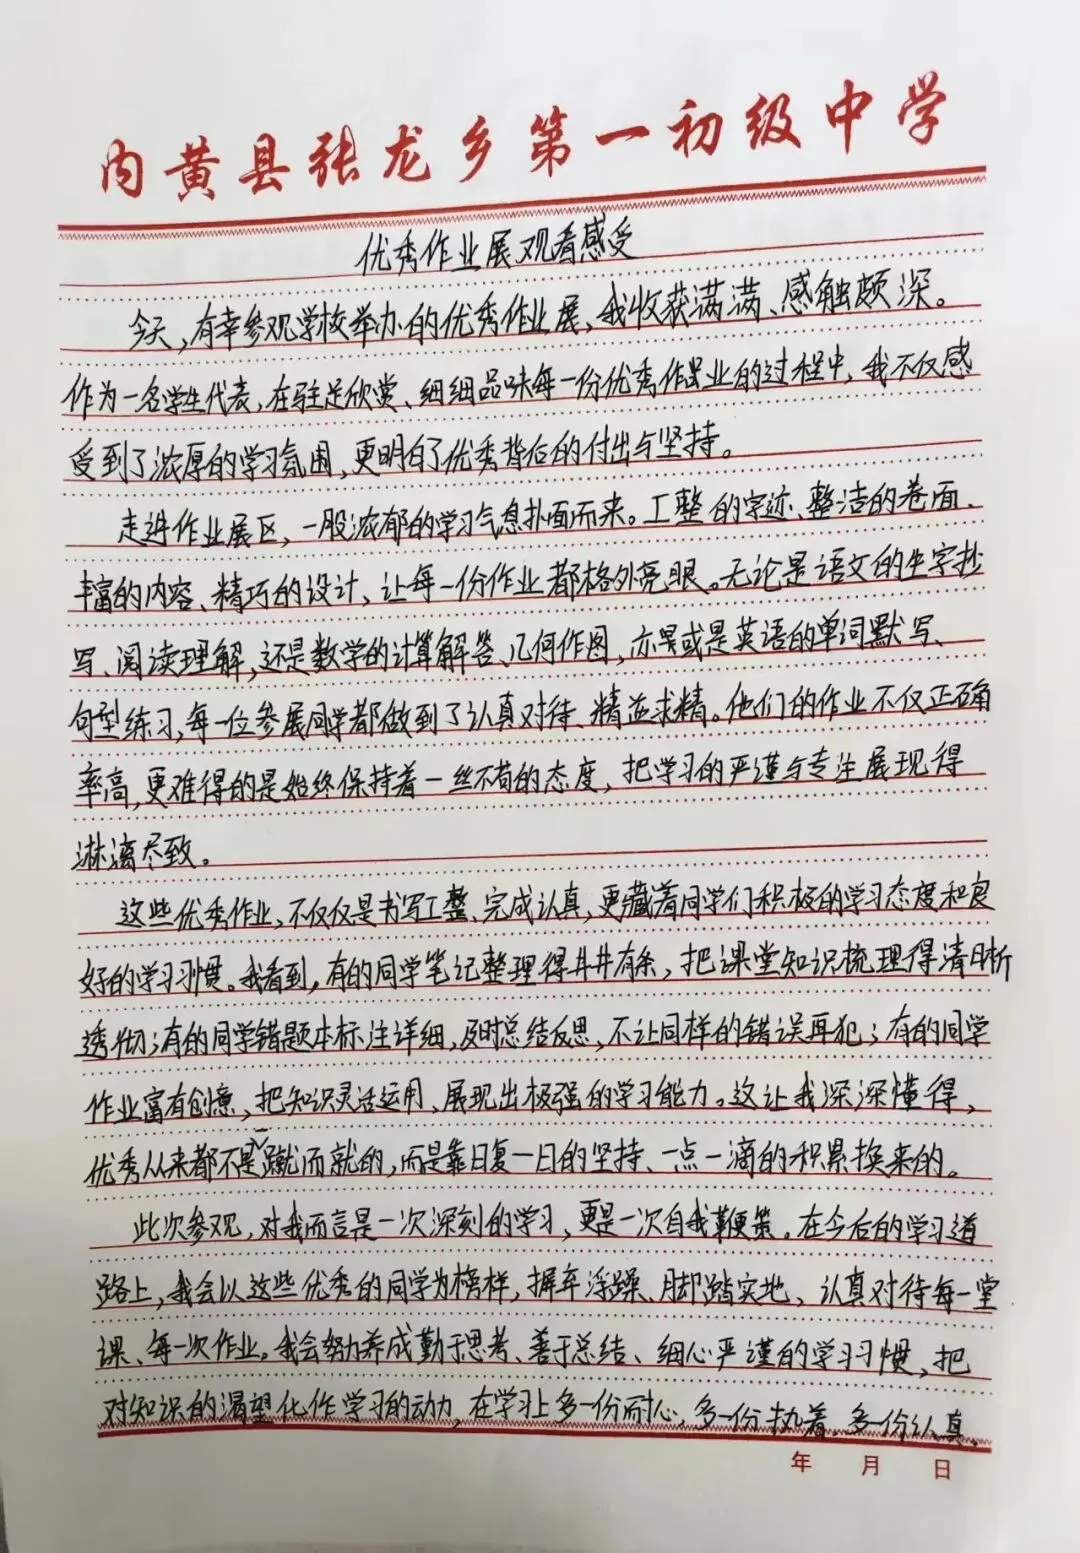 内黄县张龙乡第一初级中学
优秀作业展观看感受
今天,有幸参观学校举办的优秀作业展,我收获满满、感触颇深。
作为一名学生代表,在驻足欣赏、细细品味每一份优秀作业的过程中,我不仅感
受到了浓厚的学习氛围,更明白了优秀背后的付出与坚持。
走进作业展区,一股浓郁的学习气息扑面而来。工整的字迹、整洁的卷面、
丰富的内容、精巧的设计,让每一份作业都格外亮眼。无论是语文的生字抄
写、阅读理解,还是数学的计算解答、几何作图,亦或是英语的单词默写、
句型练习,每一位参展同学都做到了认真对待、精益求精。他们的作业不仅正确
率高,更难得的是始终保持着一丝不苟的态度,把学习的严谨与专注展现得
淋漓尽致。
这些优秀作业,不仅仅是书写工整、完成认真,更藏着同学们积极的学习态度和良
好的学习习惯。我看到,有的同学笔记整理得井井有条,把课堂知识梳理得清晰
透彻;有的同学错题本标注详细,及时总结反思,不让同样的错误再犯;有的同学
作业富有创意,把知识灵活运用,展现出极强的学习能力。这让我深深懂得,
优秀从来都不是一蹴而就的,而是靠日复一日的坚持、一点一滴的积累换来的。
此次参观,对我而言是一次深刻的学习,更是一次自我鞭策。在今后的学习道
路上,我会以这些优秀的同学为榜样,摒弃浮躁、脚踏实地,认真对待每一堂
课、每一次作业。我会努力养成勤于思考、善于总结、细心严谨的学习习惯,把
对知识的渴望化作学习的动力,在学习上多一份耐心,多一份执着,多一份认真,
年 月 日